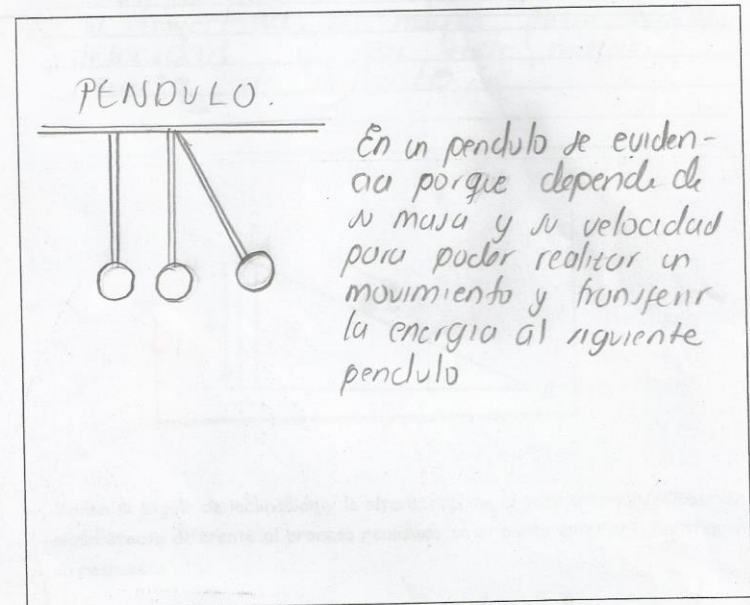 PENDULO.
En un pendulo se eviden-
cia porque depende de
su masa y su velocidad
para poder realizar un
movimiento y transferir
la energia al siguiente
pendulo